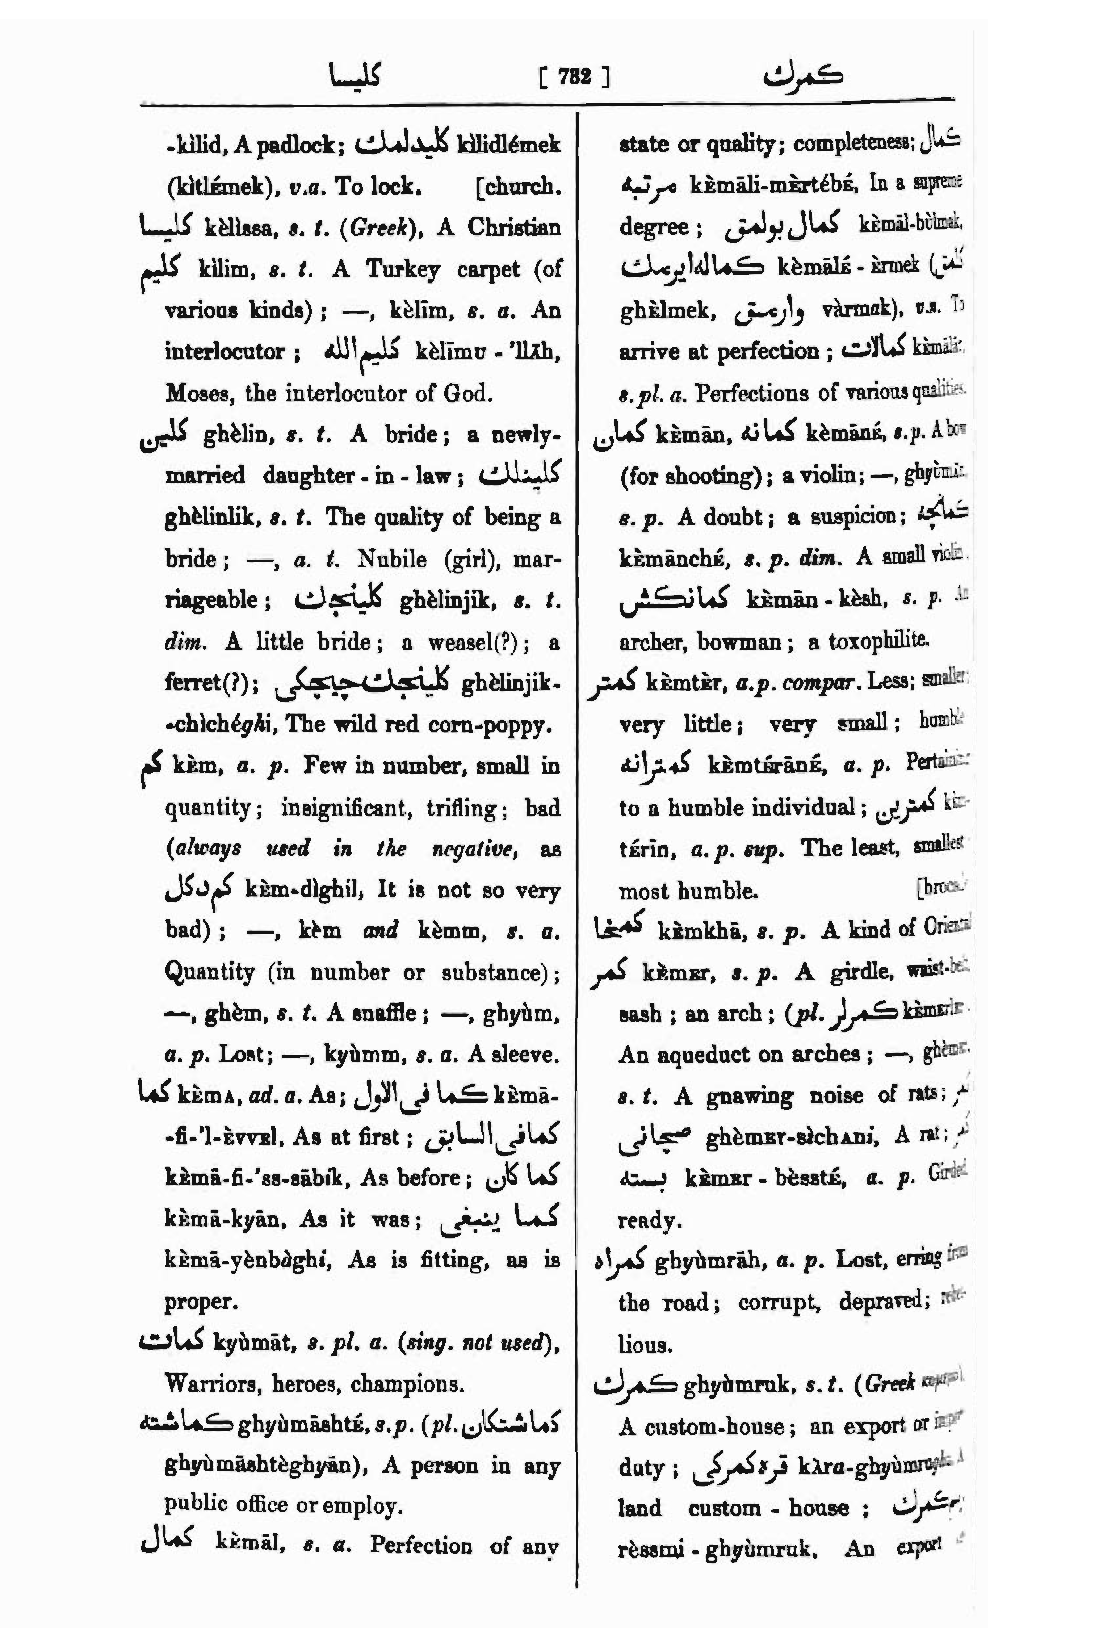 كليسا [ 782 ] كمرك
-kìlid, A padlock; كليدلمك kìlidlémek
(kìtlÉmek), v.a. To lock. [church.
كليسا kèlìssa, s. t. (Greek), A Christian
كليم kìlim, s. t. A Turkey carpet (of
various kinds) ; —, kèlīm, s. a. An
interlocutor ; كليم الله kèlīmu - 'llAh,
Moses, the interlocutor of God.
كلين ghèlin, s. t. A bride ; a newly-
married daughter - in - law ; كلينلك
ghèlinlik, s. t. The quality of being a
bride ; —, a. t. Nubile (girl), mar-
riageable ; كلينجك ghèlinjik, s. t.
dim. A little bride ; a weasel(?) ; a
ferret(?); كلينجك چيچكى ghèlinjik-
-chìchéghi, The wild red corn-poppy.
كم kÈm, a. p. Few in number, small in
quantity; insignificant, trifling; bad
(always used in the negative, as
كم دكل kÈm-dìghil, It is not so very
bad) ; —, kèm and kèmm, s. a.
Quantity (in number or substance);
—, ghèm, s. t. A snaffle ; —, ghyùm,
a. p. Lost; —, kyùmm, s. a. A sleeve.
كما kÈmA, ad. a. As; كما فى الاول kÈmā-
-fi-'l-ÈvvEl, As at first ; كما فى السابق
kÈmā-fi-'ss-sābik, As before ; كما كان
kÈmā-kyān, As it was ; كما ينبغى
kÈmā-yènbàghi, As is fitting, as is
proper.
كمات kyùmāt, s. pl. a. (sing. not used),
Warriors, heroes, champions.
كماشته ghyùmāshtÉ, s.p. (pl. كماشتكان
ghyùmāshtèghyān), A person in any
public office or employ.
كمال kÈmāl, s. a. Perfection of any
state or quality; completeness; كمال
مرتبه kÈmāli-mÈrtébÉ, In a supreme
degree ; كمال بولمق kÈmāl-bùlmak,
كماله ايرمك kèmālÉ - Èrmek (كلمق
ghÈlmek, وارمق vàrmak), v.n. To
arrive at perfection ; كمالات kÈmālāt,
s. pl. a. Perfections of various qualities.
كمان kÈmān, كمانه kèmānÉ, s.p. A bow
(for shooting) ; a violin; —, ghyùmān,
s. p. A doubt ; a suspicion ; كمانچه
kÈmānchÉ, s. p. dim. A small violin.
كمانكش kÈmān - kèsh, s. p. An
archer, bowman ; a toxophilite.
كمتر kÈmtÈr, a.p. compar. Less; smaller;
very little; very small ; humble
كمترانه kÈmtÉrānÉ, a. p. Pertaining
to a humble individual ; كمترين kÈm-
tÉrīn, a. p. sup. The least, smallest
most humble. [brocade.
كمخا kÈmkhā, s. p. A kind of Oriental
كمر kÈmEr, s. p. A girdle, waist-belt
sash ; an arch ; (pl. كمرلر kÈmErlEr
An aqueduct on arches ; —, ghèmEr.
s. t. A gnawing noise of rats; كمر
صچانى ghèmEr-sìchAni, A rat; كمر
بسته kÈmEr - bèsstÉ, a. p. Girded
ready.
كمراه ghyùmrāh, a. p. Lost, erring from
the road ; corrupt, depraved; rebel-
lious.
كمرك ghyùmruk, s. t. (Greek
A custom-house ; an export or import
duty ; قره كمركى kAra-ghyùmrughi, A
land custom - house ;
rèssmi - ghyùmruk, An export